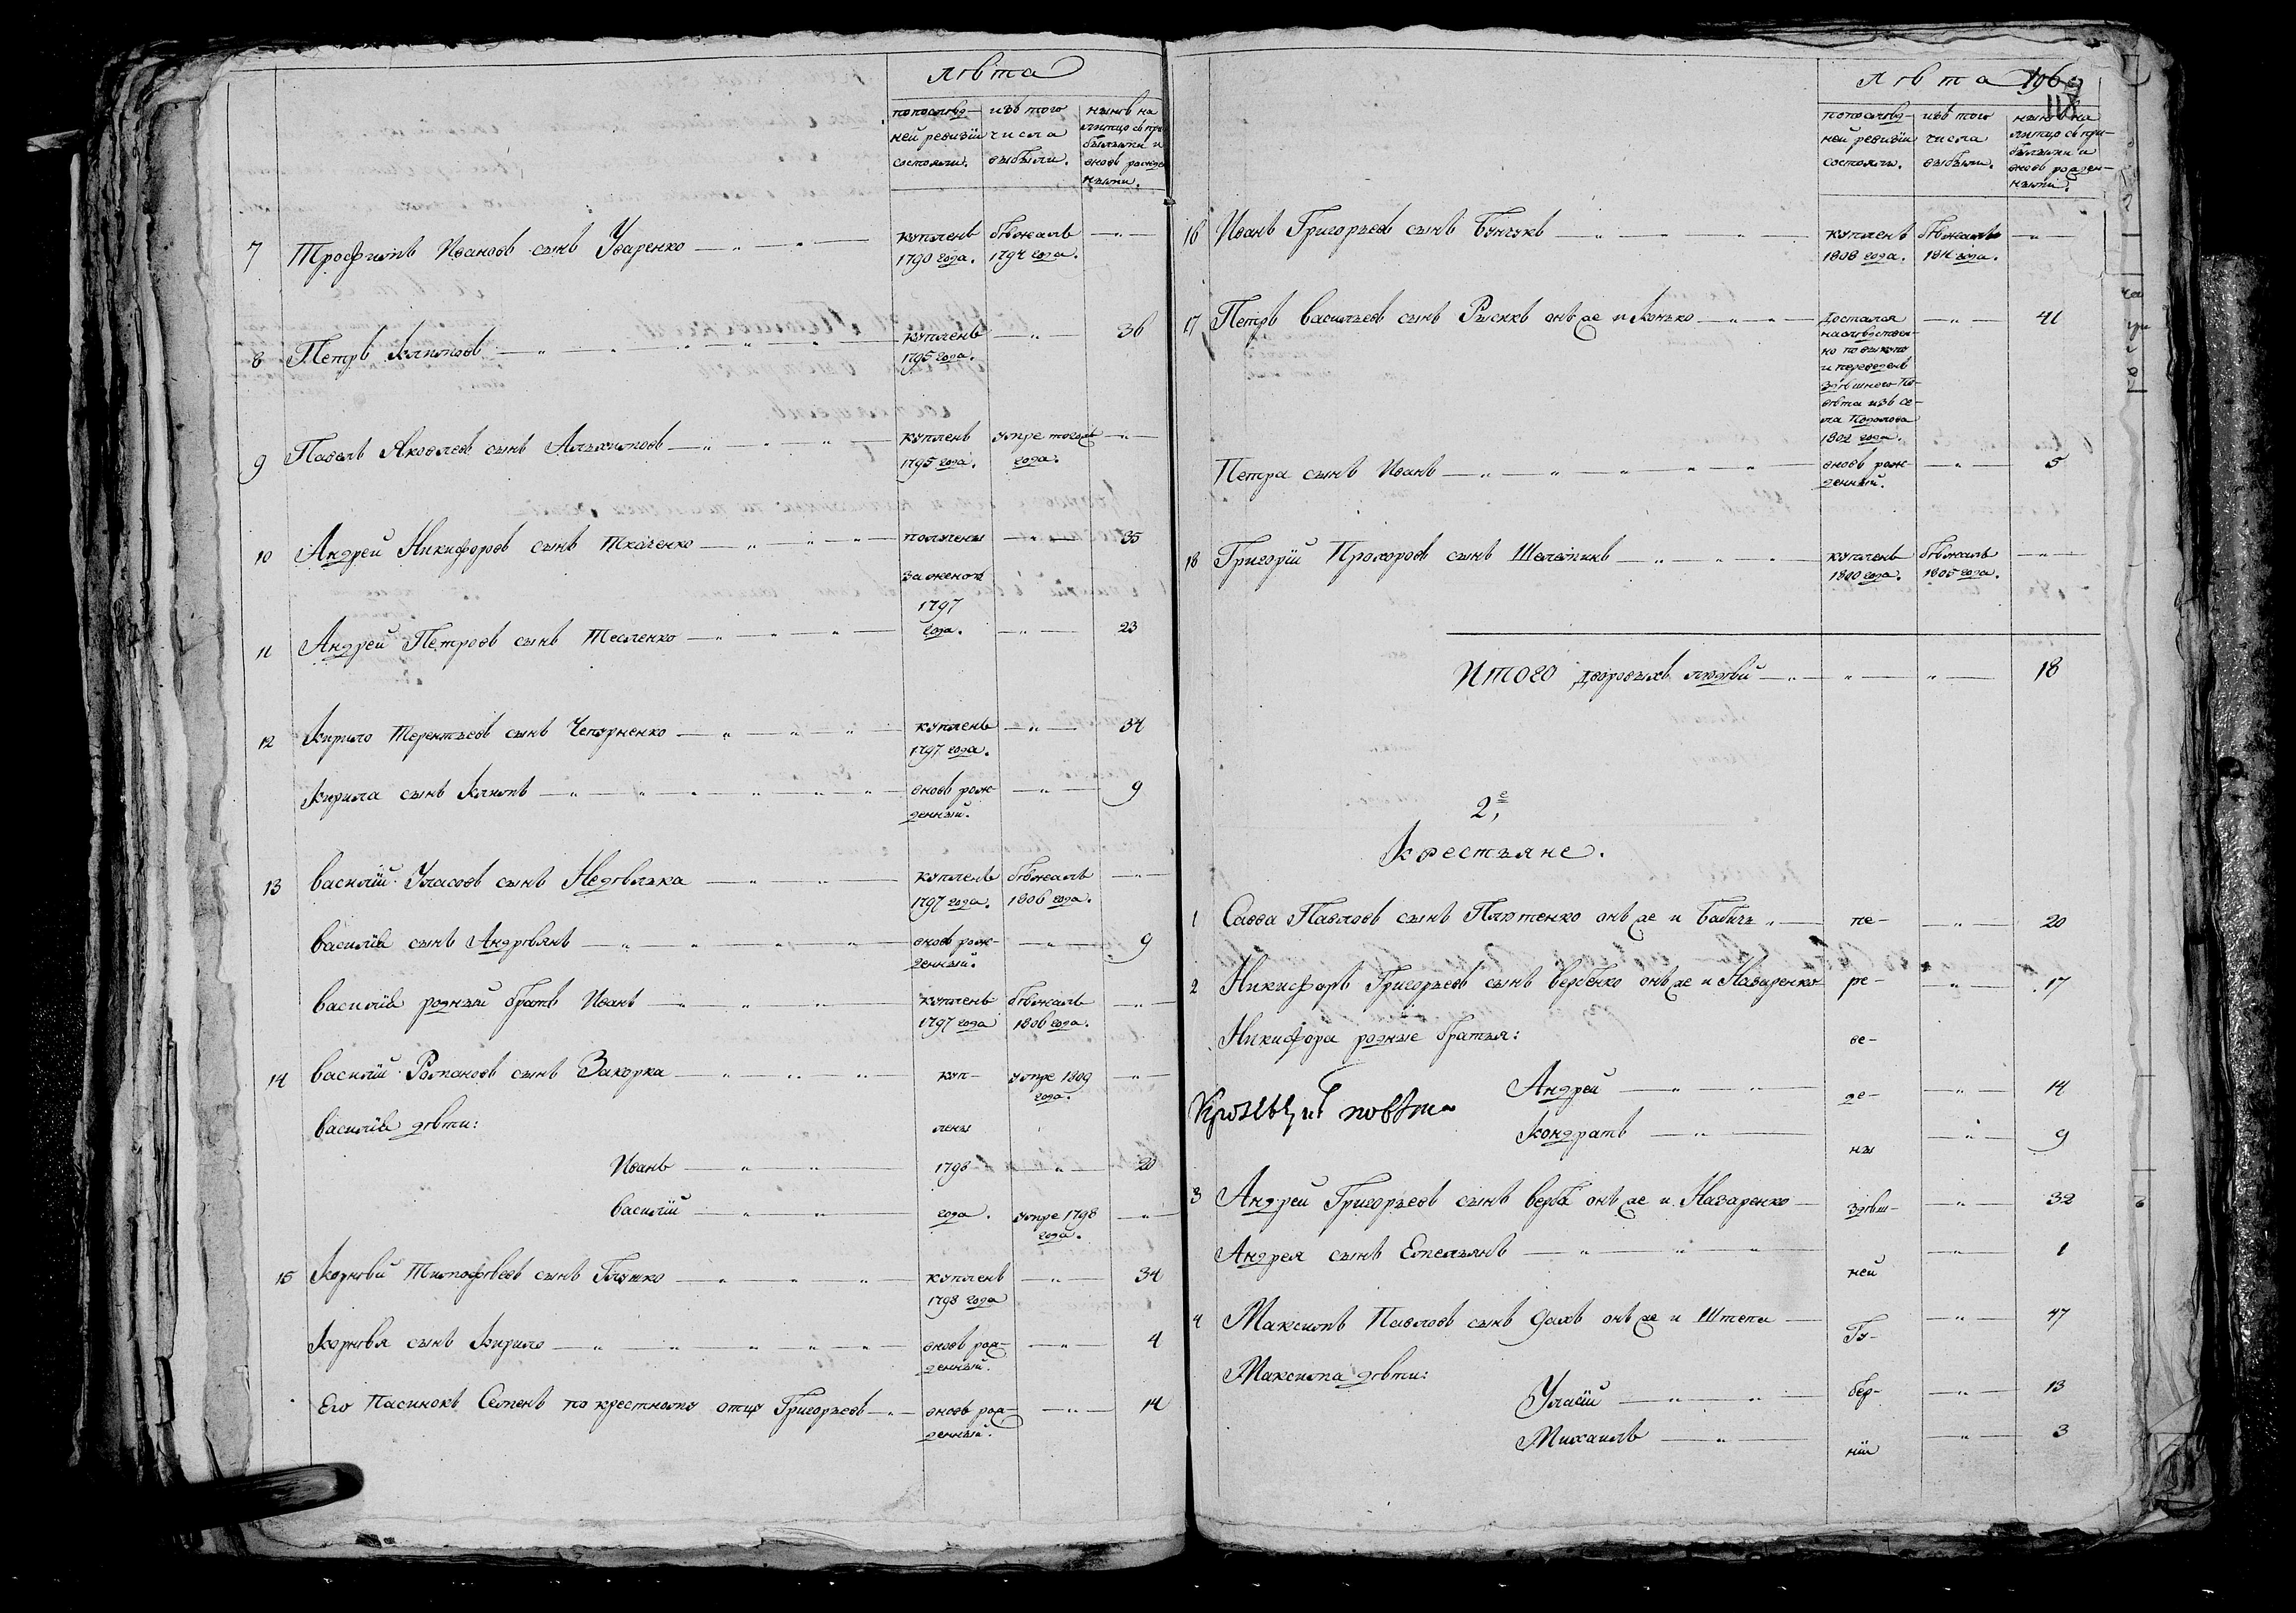 Лѣта
попослѣд-
ней ревизіи
состояли.
изъ того
числа
выбыли.
нынѣ на
лицо съ при
былыми и
вновь рожде
нными.
7 Трофимъ Ивановъ сынъ Уваренко — куплень бѣжалъ —
1790 года. 1794 года.
8 Петръ Климовъ — куплень — 36
1795 года.
9 Павелъ Яковлевъ сынъ — куплень умре тогожъ —
1795 года. года.
10 Андрей Никифоровъ сынъ Ткаченко — получены — 35
за женою
1797
11 Андрей Петровъ сынъ Тесленко — года. — 23
12 Кирило Терентьевъ сынъ Чепурненко — куплень — 34
1797 года.
Кирила сынъ Климъ — вновь рож- — 9
денный.
13 Василій Уласовъ сынъ Недѣлька — куплень бѣжалъ —
1797 года. 1806 года.
Василія сынъ Андрѣянъ — вновь рож- — 9
денный.
Василія родный братъ Иванъ — куплень бѣжалъ —
1797 года 1806 года.
14 Василій Романовъ сынъ Закорка — куп- умре 1809 —
года.
Василія дѣти: лены
Иванъ — 1798 — 20
Василій — года. умре 1798 —
года.
15 Корнѣй Тимофѣевъ сынъ Глушко — куплень — 34
1798 года
Корнѣя сынъ Кирило — вновь рож- — 4
денный.
Его Пасинокъ Семенъ по крестному отцу Григорьевъ — вновь рож- — 14
денный.
Лѣта 196
118
попослѣд-
ней ревизіи
состояли.
изъ того
числа
выбыли.
нынѣ на
лицо съ при-
былыми и
вновь рожден-
ными.
16 Иванъ Григорьевъ сынъ Бунчукъ — куплень бѣжалъ —
1808 года. 1811 года.
17 Петръ Васильевъ сынъ Рыскъ онъ же и Конько — Достался — 41
наслѣдствен-
но
и переведенъ
здѣшнего По-
вѣта изъ се-
ла
1802 года.
Петра сынъ Иванъ — вновь рож- — 5
денный.
18 Григорій Прохоровъ сынъ Шелепинъ — куплень бѣжалъ —
1800 года. 1805 года.
Итого дворовыхъ людѣй — 18
2е,
Крестьяне.
1 Савва Павловъ сынъ Плютенко онъ же и Бабичъ — пе- — 20
2 Никифоръ Григорьевъ сынъ Вербенко онъ же и Назаренко ре- — 17
Никифора родные братья: ве-
Андрей — де- — 14
повѣта
Кондратъ — ны — 9
3 Андрей Григорьевъ сынъ Верба онъ же и Назаренко — здѣш- — 32
Андрея сынъ Емельянъ — 1
ней
4 Максимъ Павловъ сынъ онъ же и Штепа — Гу- — 47
Максима дѣти:
Уласій — бер- — 13
Михаилъ — ніи — 3